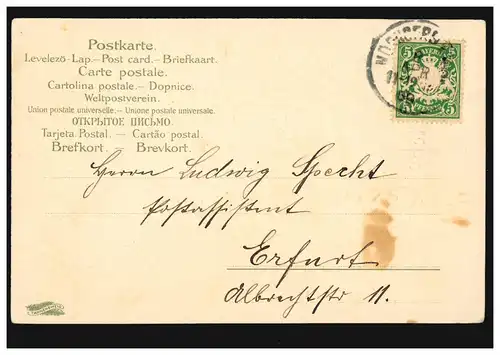 Postkarte.
Levelező-Lap. — Post card. — Briefkaart.
Carte postale.
Cartolina postale. — Dopnice.
Weltpostverein.
Union postale universelle. — Unione postale universale.
ОТКРЫТОЕ ПИСЬМО.
Tarjeta Postal. — Cartão postal.
Brefkort. — Brevkort.
5 5
5 5
Herrn Ludwig Specht
Postassistent
Erfurt
Albrechtstr 11.